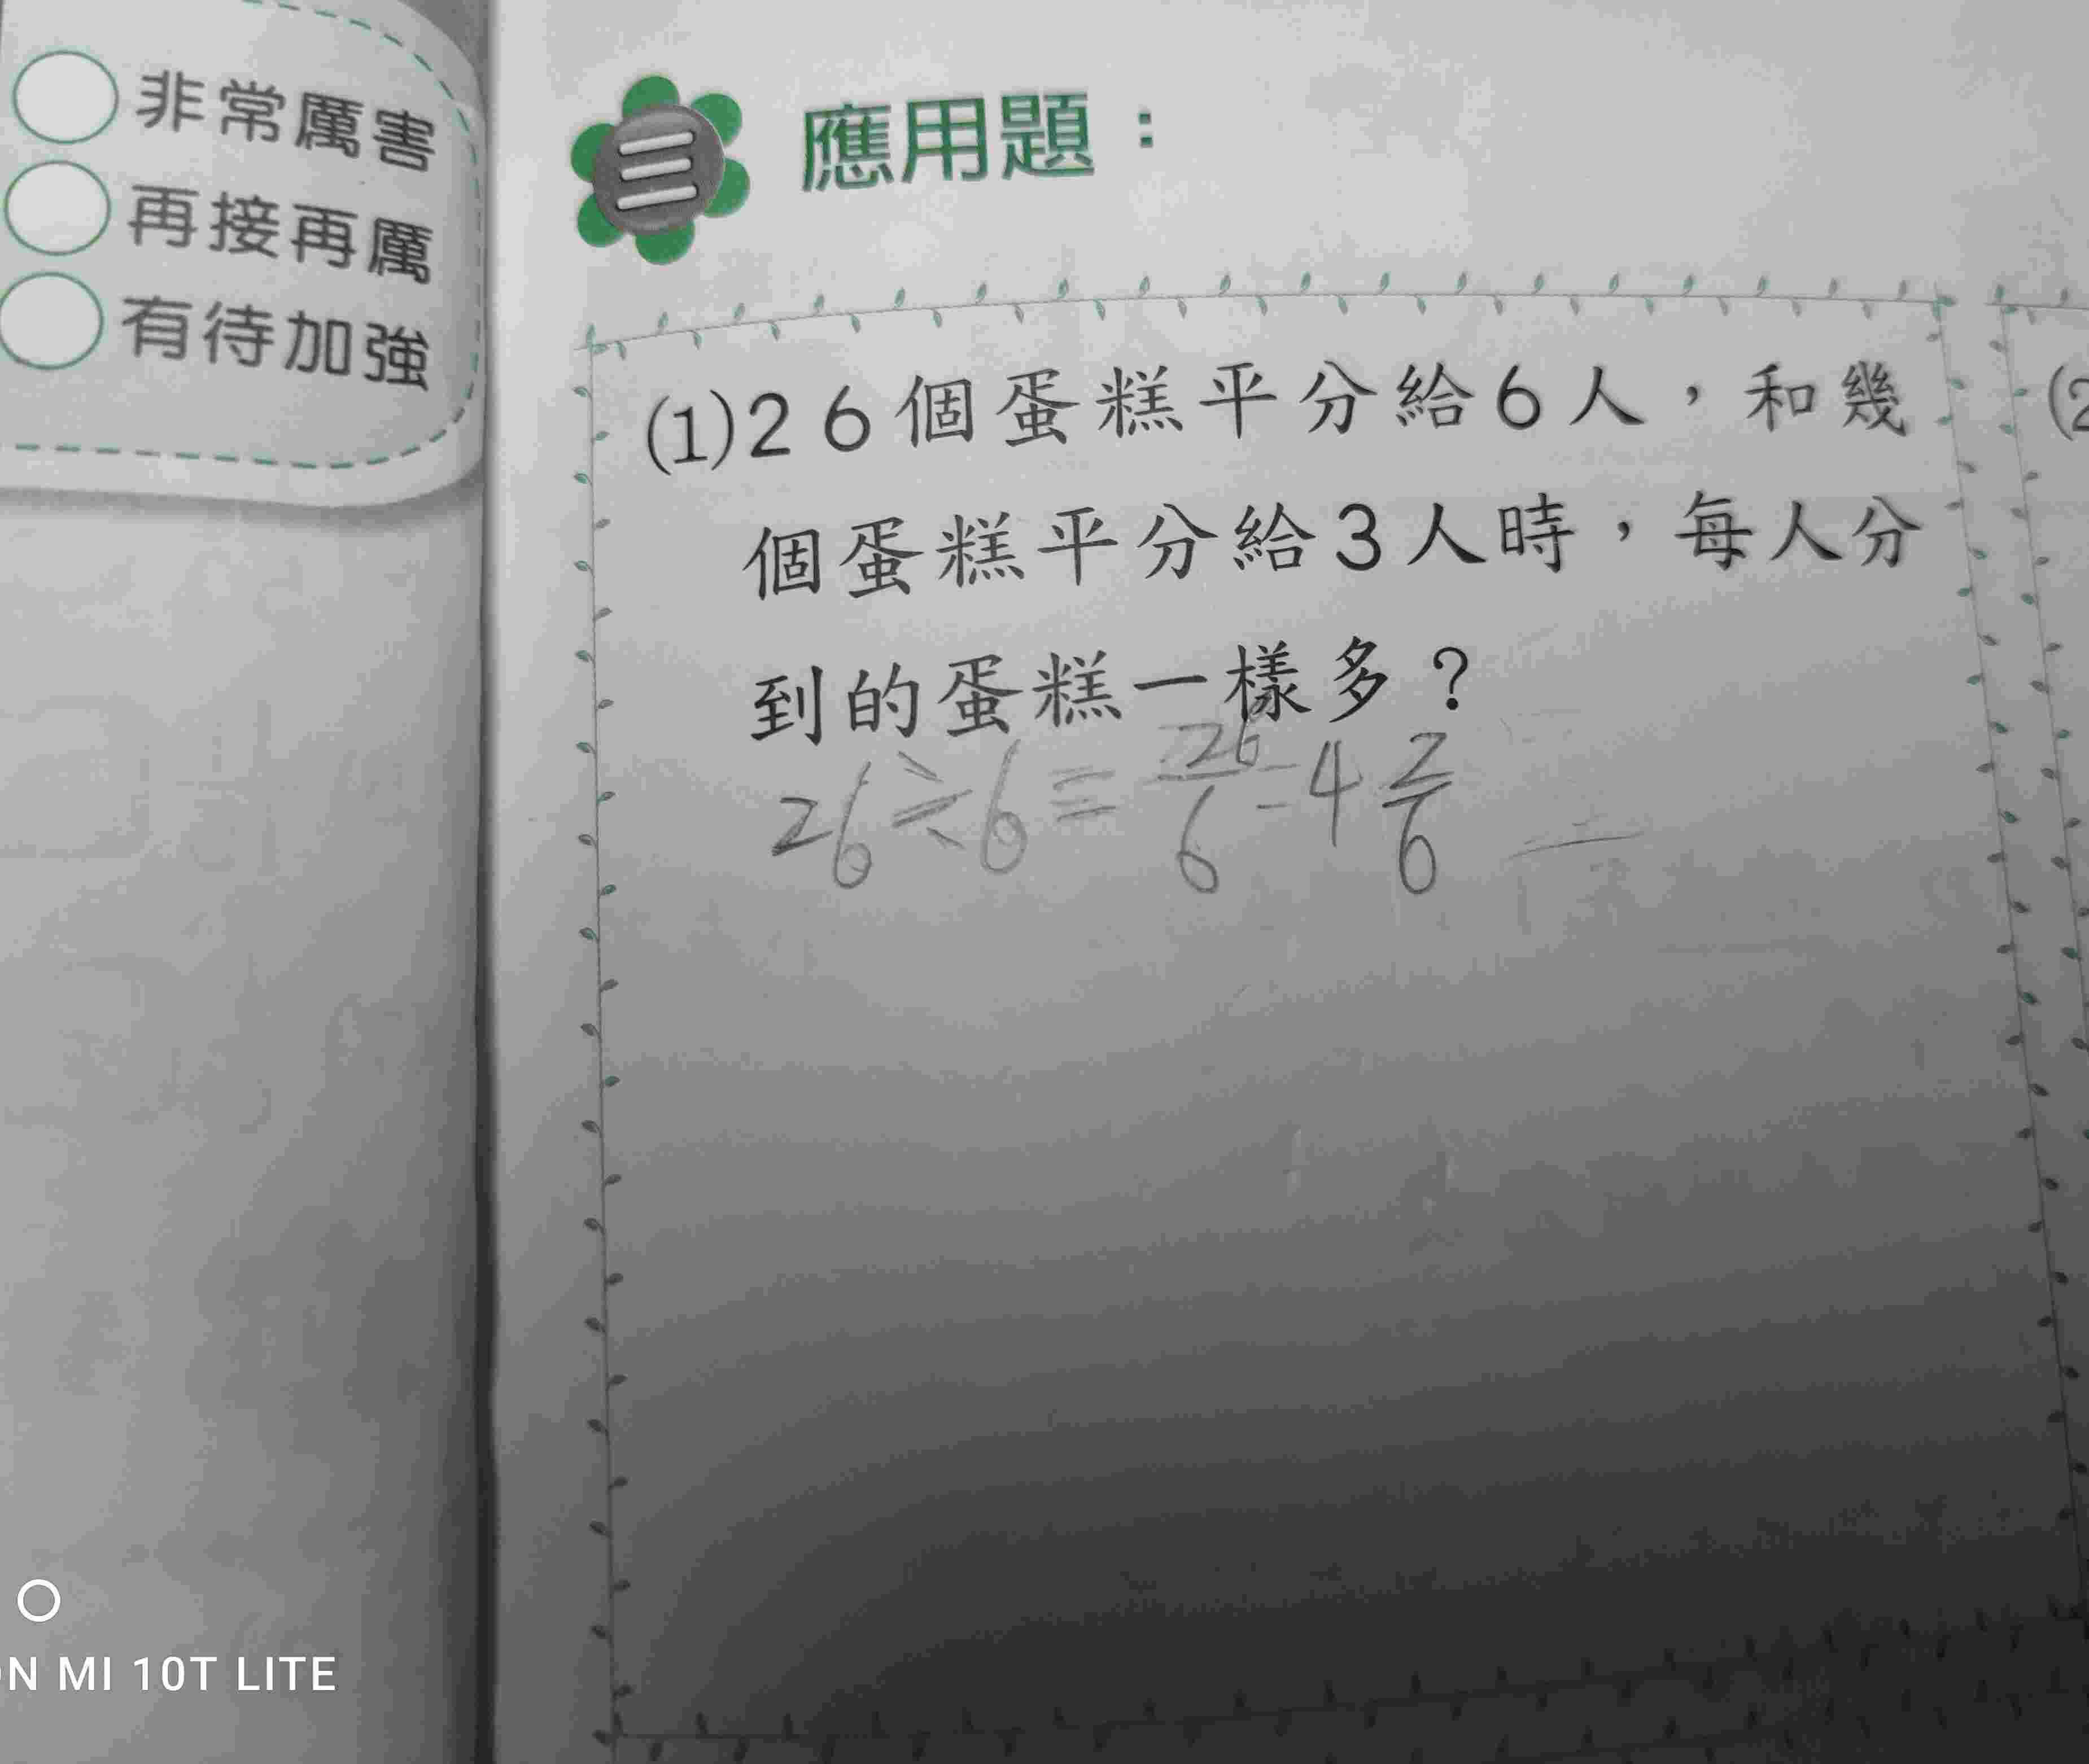 非常厲害
再接再厲
有待加強
三 應用題：
(1)26個蛋糕平分給6人，和幾
個蛋糕平分給3人時，每人分
到的蛋糕一樣多？
26÷6=26/6=4 2/6
(2
N MI 10T LITE